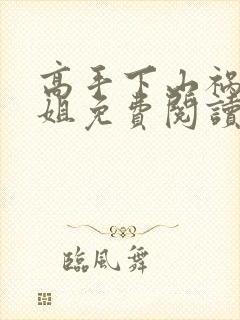 高手下山禍
姐免費閱讀
臨風舞